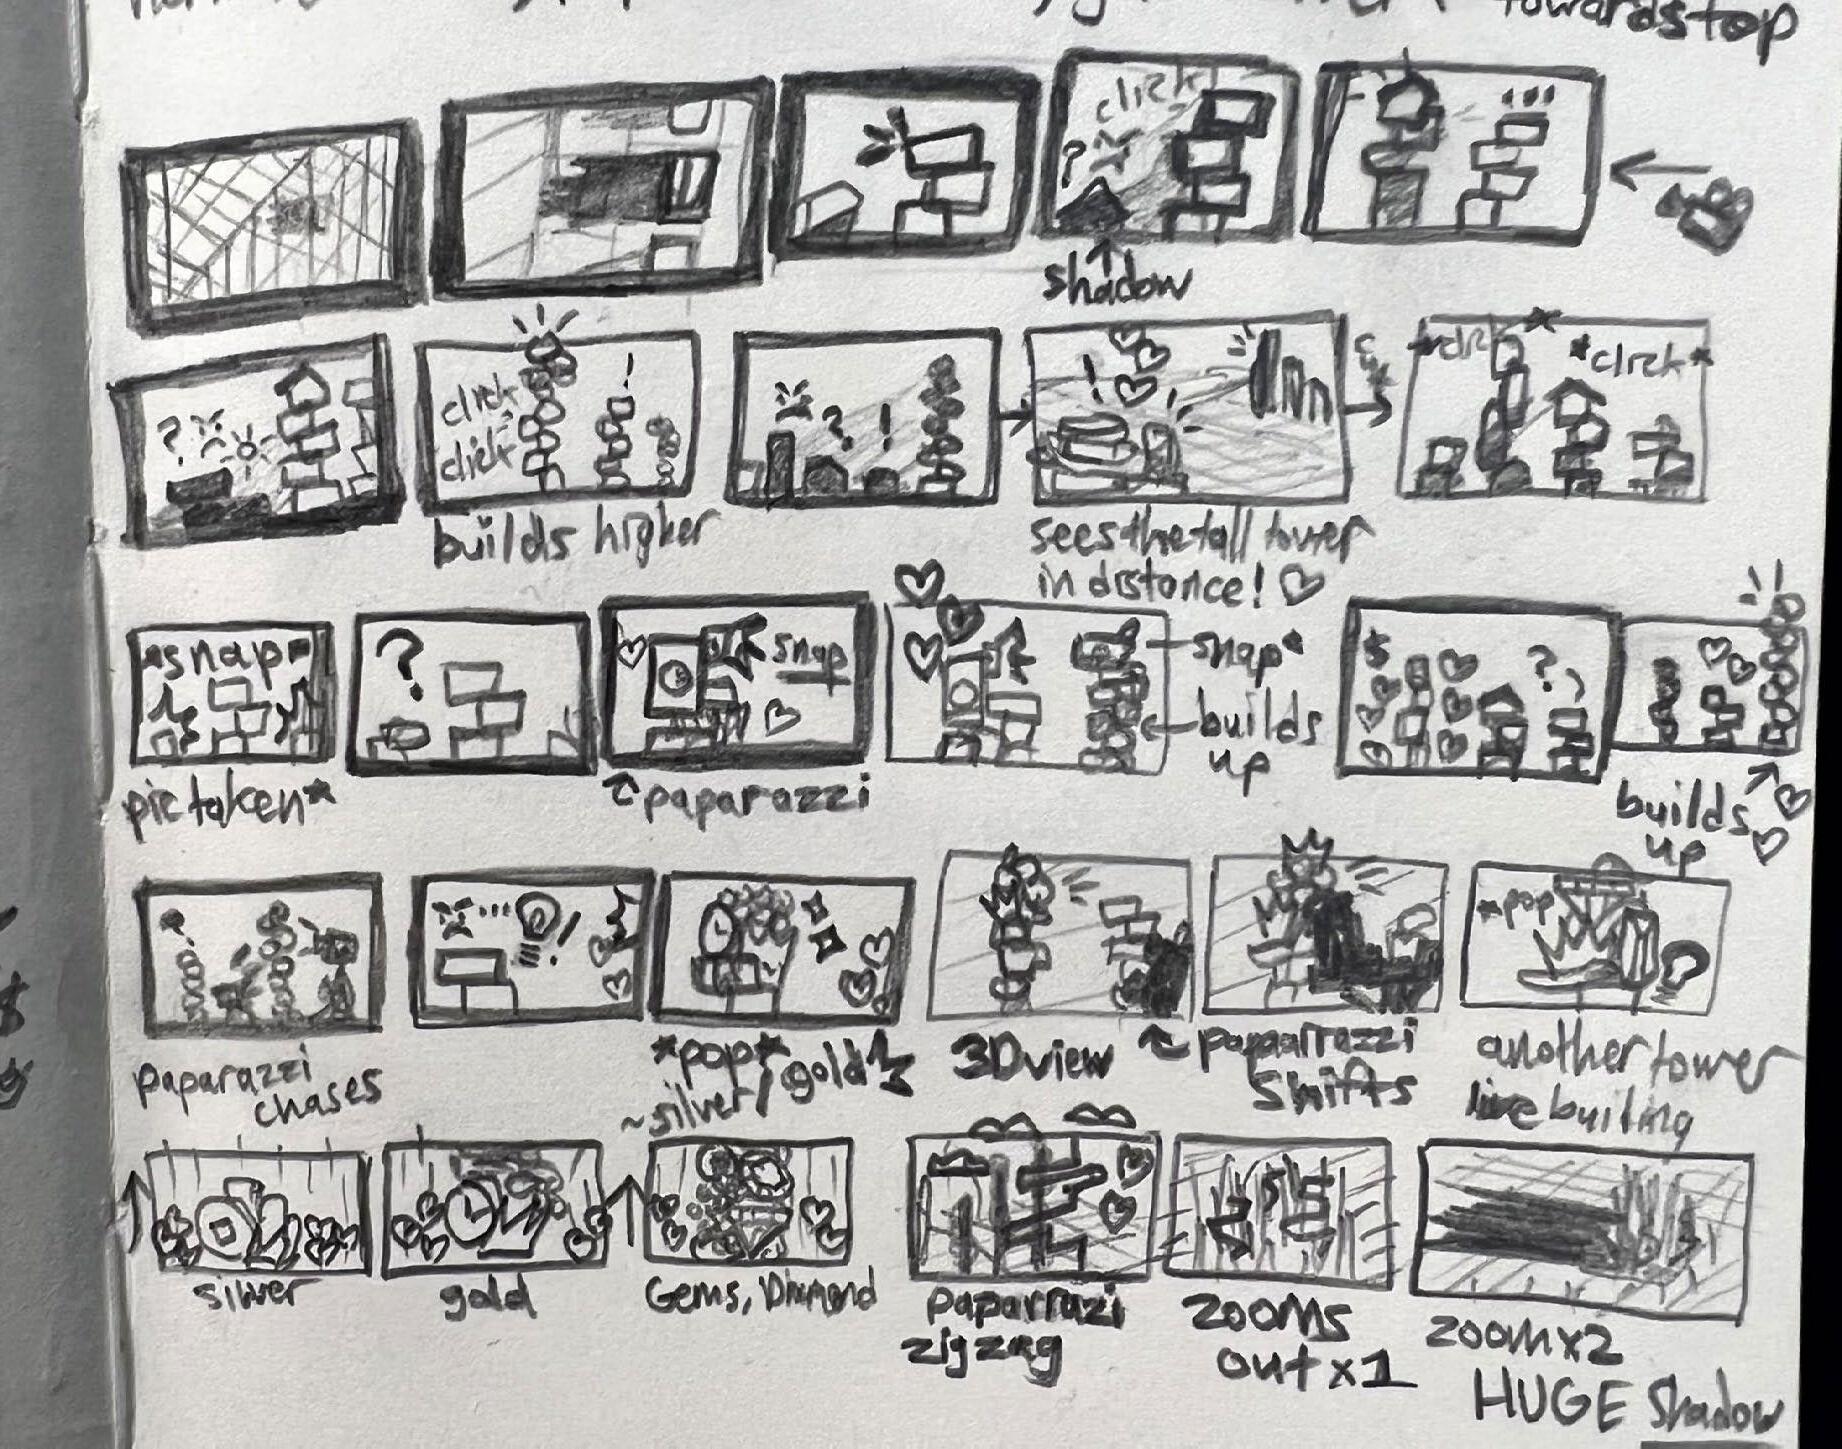 towards top
click
?
shadow
?
click
click
!
? !
!
*click*
builds higher
sees the tall tower
in distance! ♡
*snap*
?
snap
snap*
builds
up
$
?
pic taken*
paparazzi
builds
up
...!
*pop
paparazzi
chases
*pop*
~silver/gold
3D view
papaarrazzi
shifts
another tower
live builing
silver
gold
Gems, Diamond
paparrazi
zigzag
zooms
out x1
zoom x2
HUGE shadow